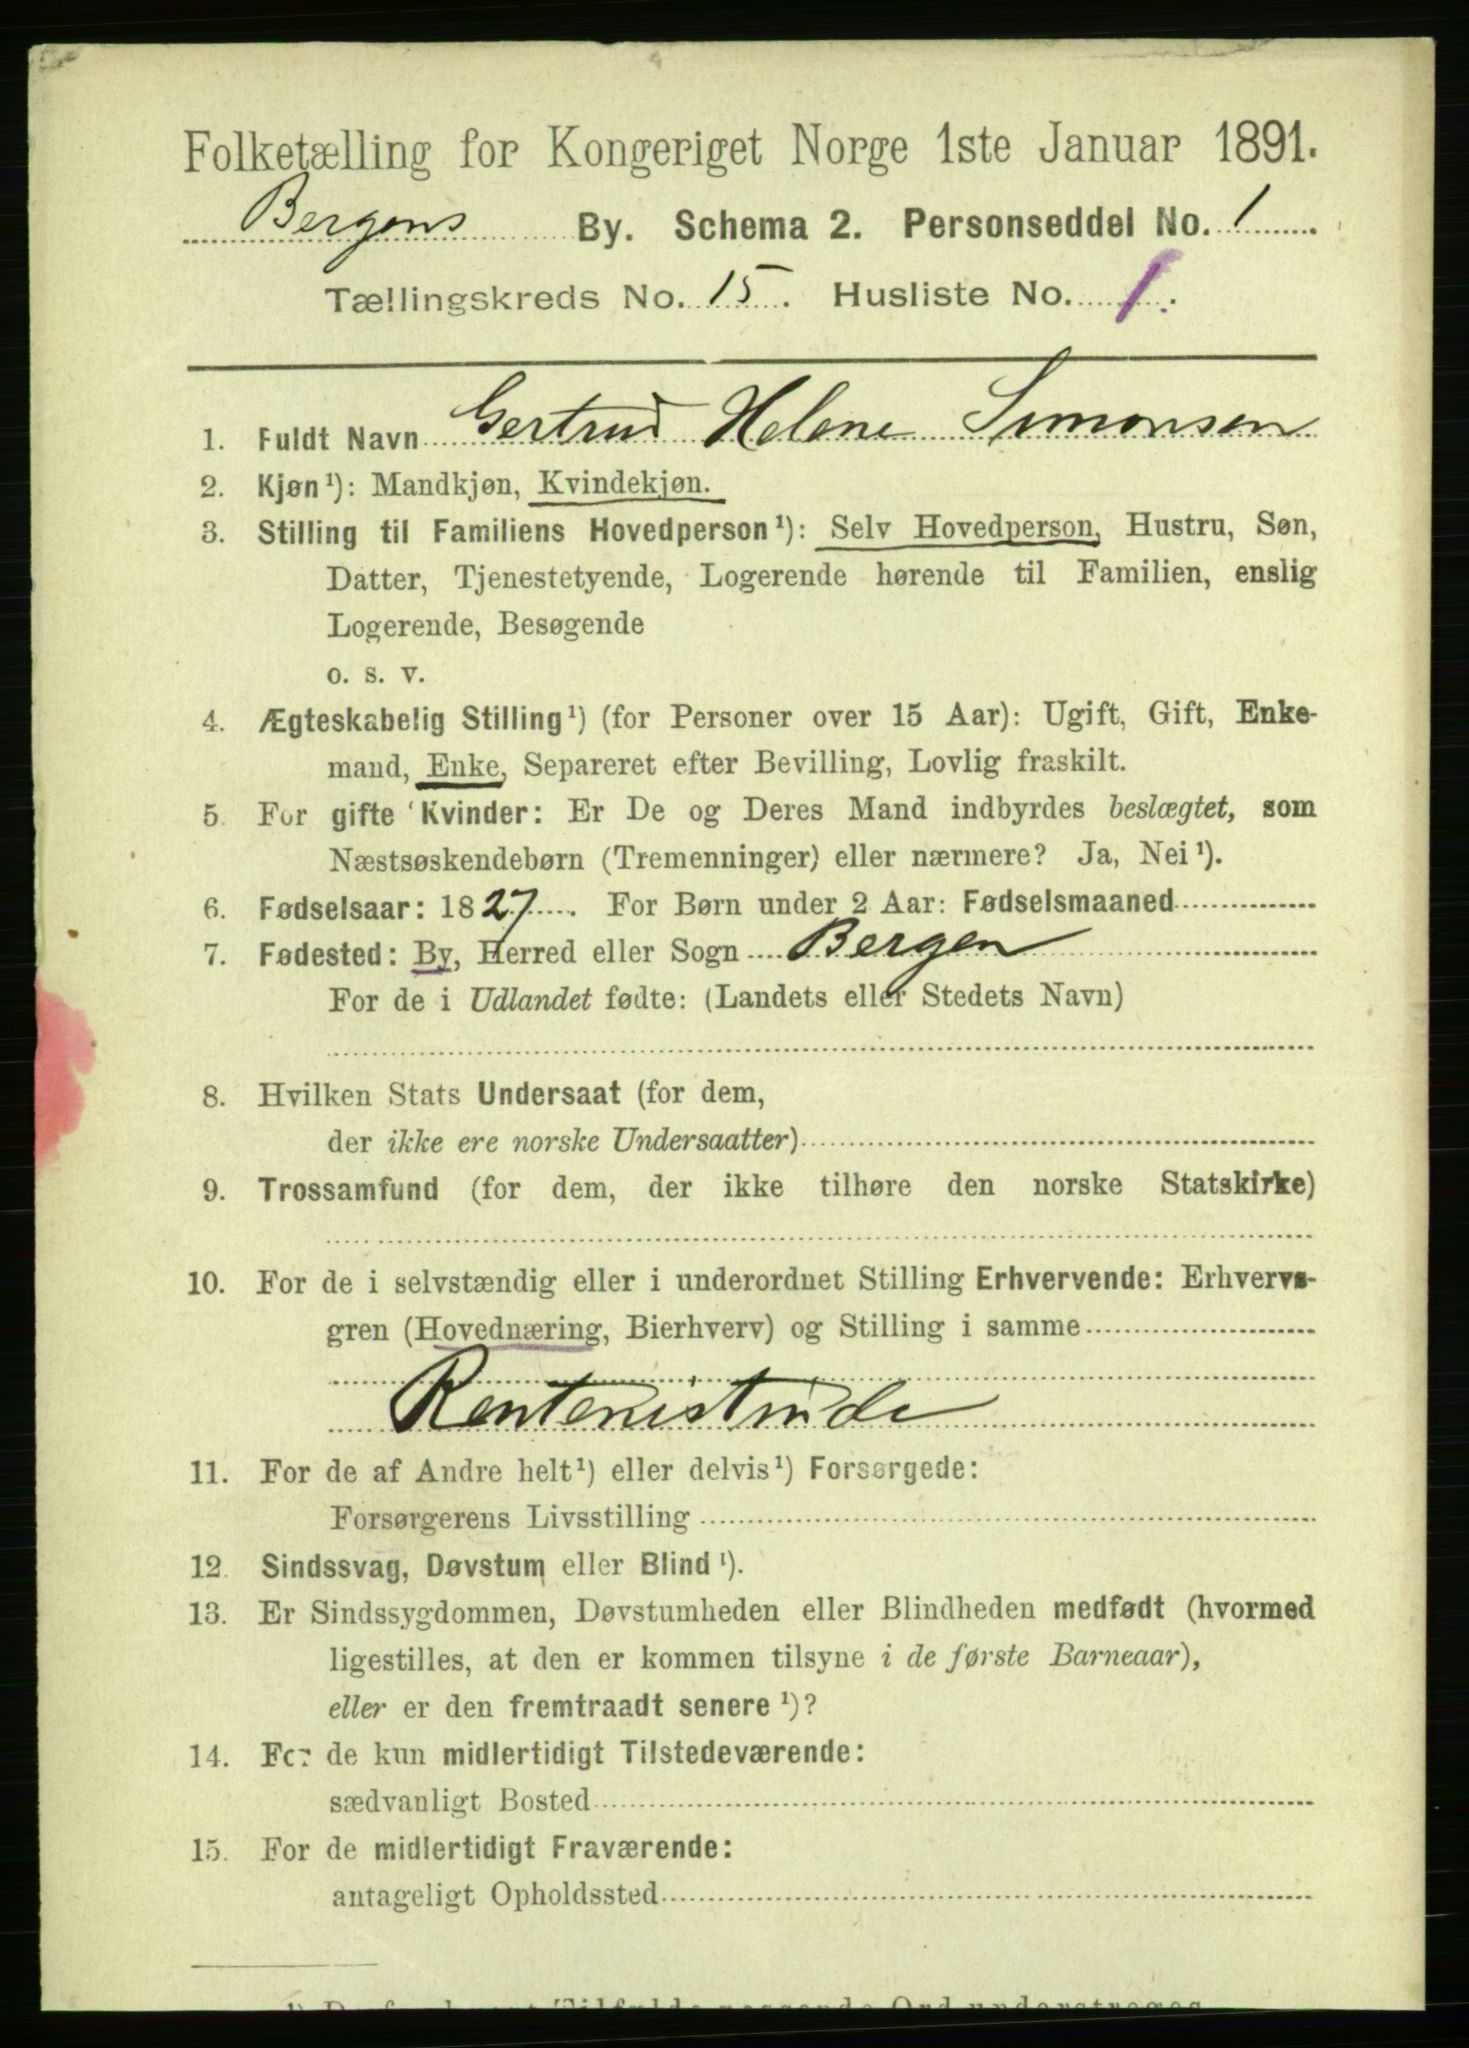 Folketælling for Kongeriget Norge 1ste Januar 1891.
Bergens By. Schema 2. Personseddel No. 1
Tællingskreds No. 15. Husliste No. 1.
1. Fuldt Navn Gertrud Helene Simonsen
2. Kjøn¹): Mandkjøn, Kvindekjøn.
3. Stilling til Familiens Hovedperson¹): Selv Hovedperson, Hustru, Søn,
Datter, Tjenestetyende, Logerende hørende til Familien, enslig
Logerende, Besøgende
o. s. v.
4. Ægteskabelig Stilling¹) (for Personer over 15 Aar): Ugift, Gift, Enke-
mand, Enke, Separeret efter Bevilling, Lovlig fraskilt.
5. For gifte Kvinder: Er De og Deres Mand indbyrdes beslægtet, som
Næstsøskendebørn (Tremenninger) eller nærmere? Ja, Nei¹).
6. Fødselsaar: 1827. For Børn under 2 Aar: Fødselsmaaned
7. Fødested: By, Herred eller Sogn Bergen
For de i Udlandet fødte: (Landets eller Stedets Navn)
8. Hvilken Stats Undersaat (for dem,
der ikke ere norske Undersaatter)
9. Trossamfund (for dem, der ikke tilhøre den norske Statskirke)
10. For de i selvstændig eller i underordnet Stilling Erhvervende: Erhvervs-
gren (Hovednæring, Bierhverv) og Stilling i samme
Rentenistinde
11. For de af Andre helt¹) eller delvis¹) Forsørgede:
Forsørgerens Livsstilling
12. Sindssvag, Døvstum eller Blind¹).
13. Er Sindssygdommen, Døvstumheden eller Blindheden medfødt (hvormed
ligestilles, at den er kommen tilsyne i de første Barneaar),
eller er den fremtraadt senere¹)?
14. For de kun midlertidigt Tilstedeværende:
sædvanligt Bosted
15. For de midlertidigt Fraværende:
antageligt Opholdssted